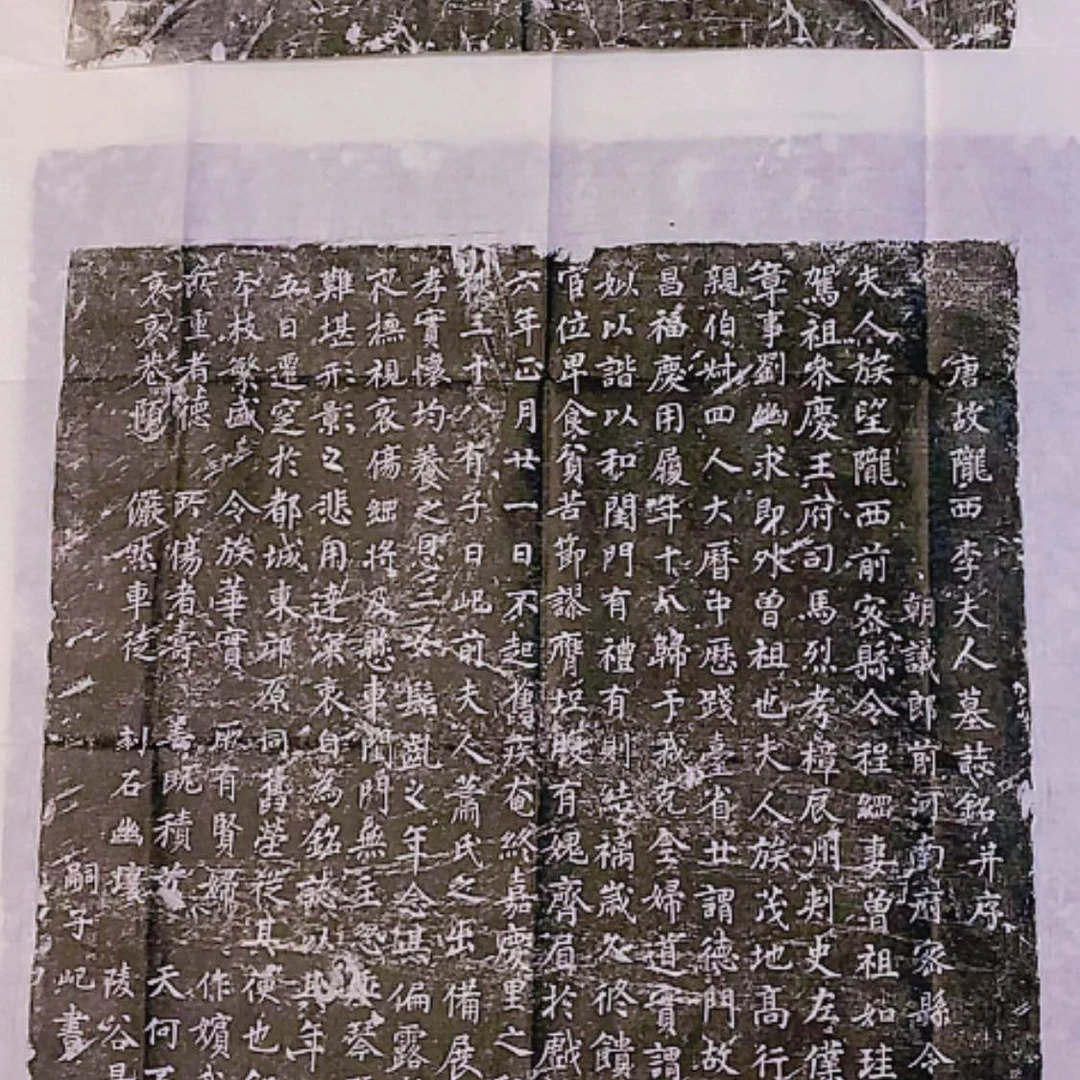 唐故隴西李夫人墓誌銘并序
朝議郎前河南府密縣令
夫人族望隴西前密縣令程妻曾祖如珪
駕祖叅慶王府司馬烈考樟辰州刾史左僕
章事劉幽求即外曾祖也夫人族茂地高行
親伯姊四人大曆中歷踐臺省廿謂德門故
昌福慶用履年十八歸于我克全婦道實謂
姒以諧以和閨門有禮有則結褵歲久俻饋
官位卑食貧苦節謬齊有媿齊眉於戲
六年正月廿一日不起舊疾奄終嘉慶里之
三十八有子曰屺前夫人蕭氏之出備展
孝實懷均養之日三女髫齔之年念其偏露
撫視哀傷將及懸車閨門無主琴
難堪形影之悲用達深哀自為銘誌以其年
五日遷窆於都城東邙原同舊塋從其便也
本枝繁盛令族華實有賢婦作嬪
所重者德所傷者壽善既積天何
哀哀儼然車徒刻石幽壤陵谷
嗣子屺書